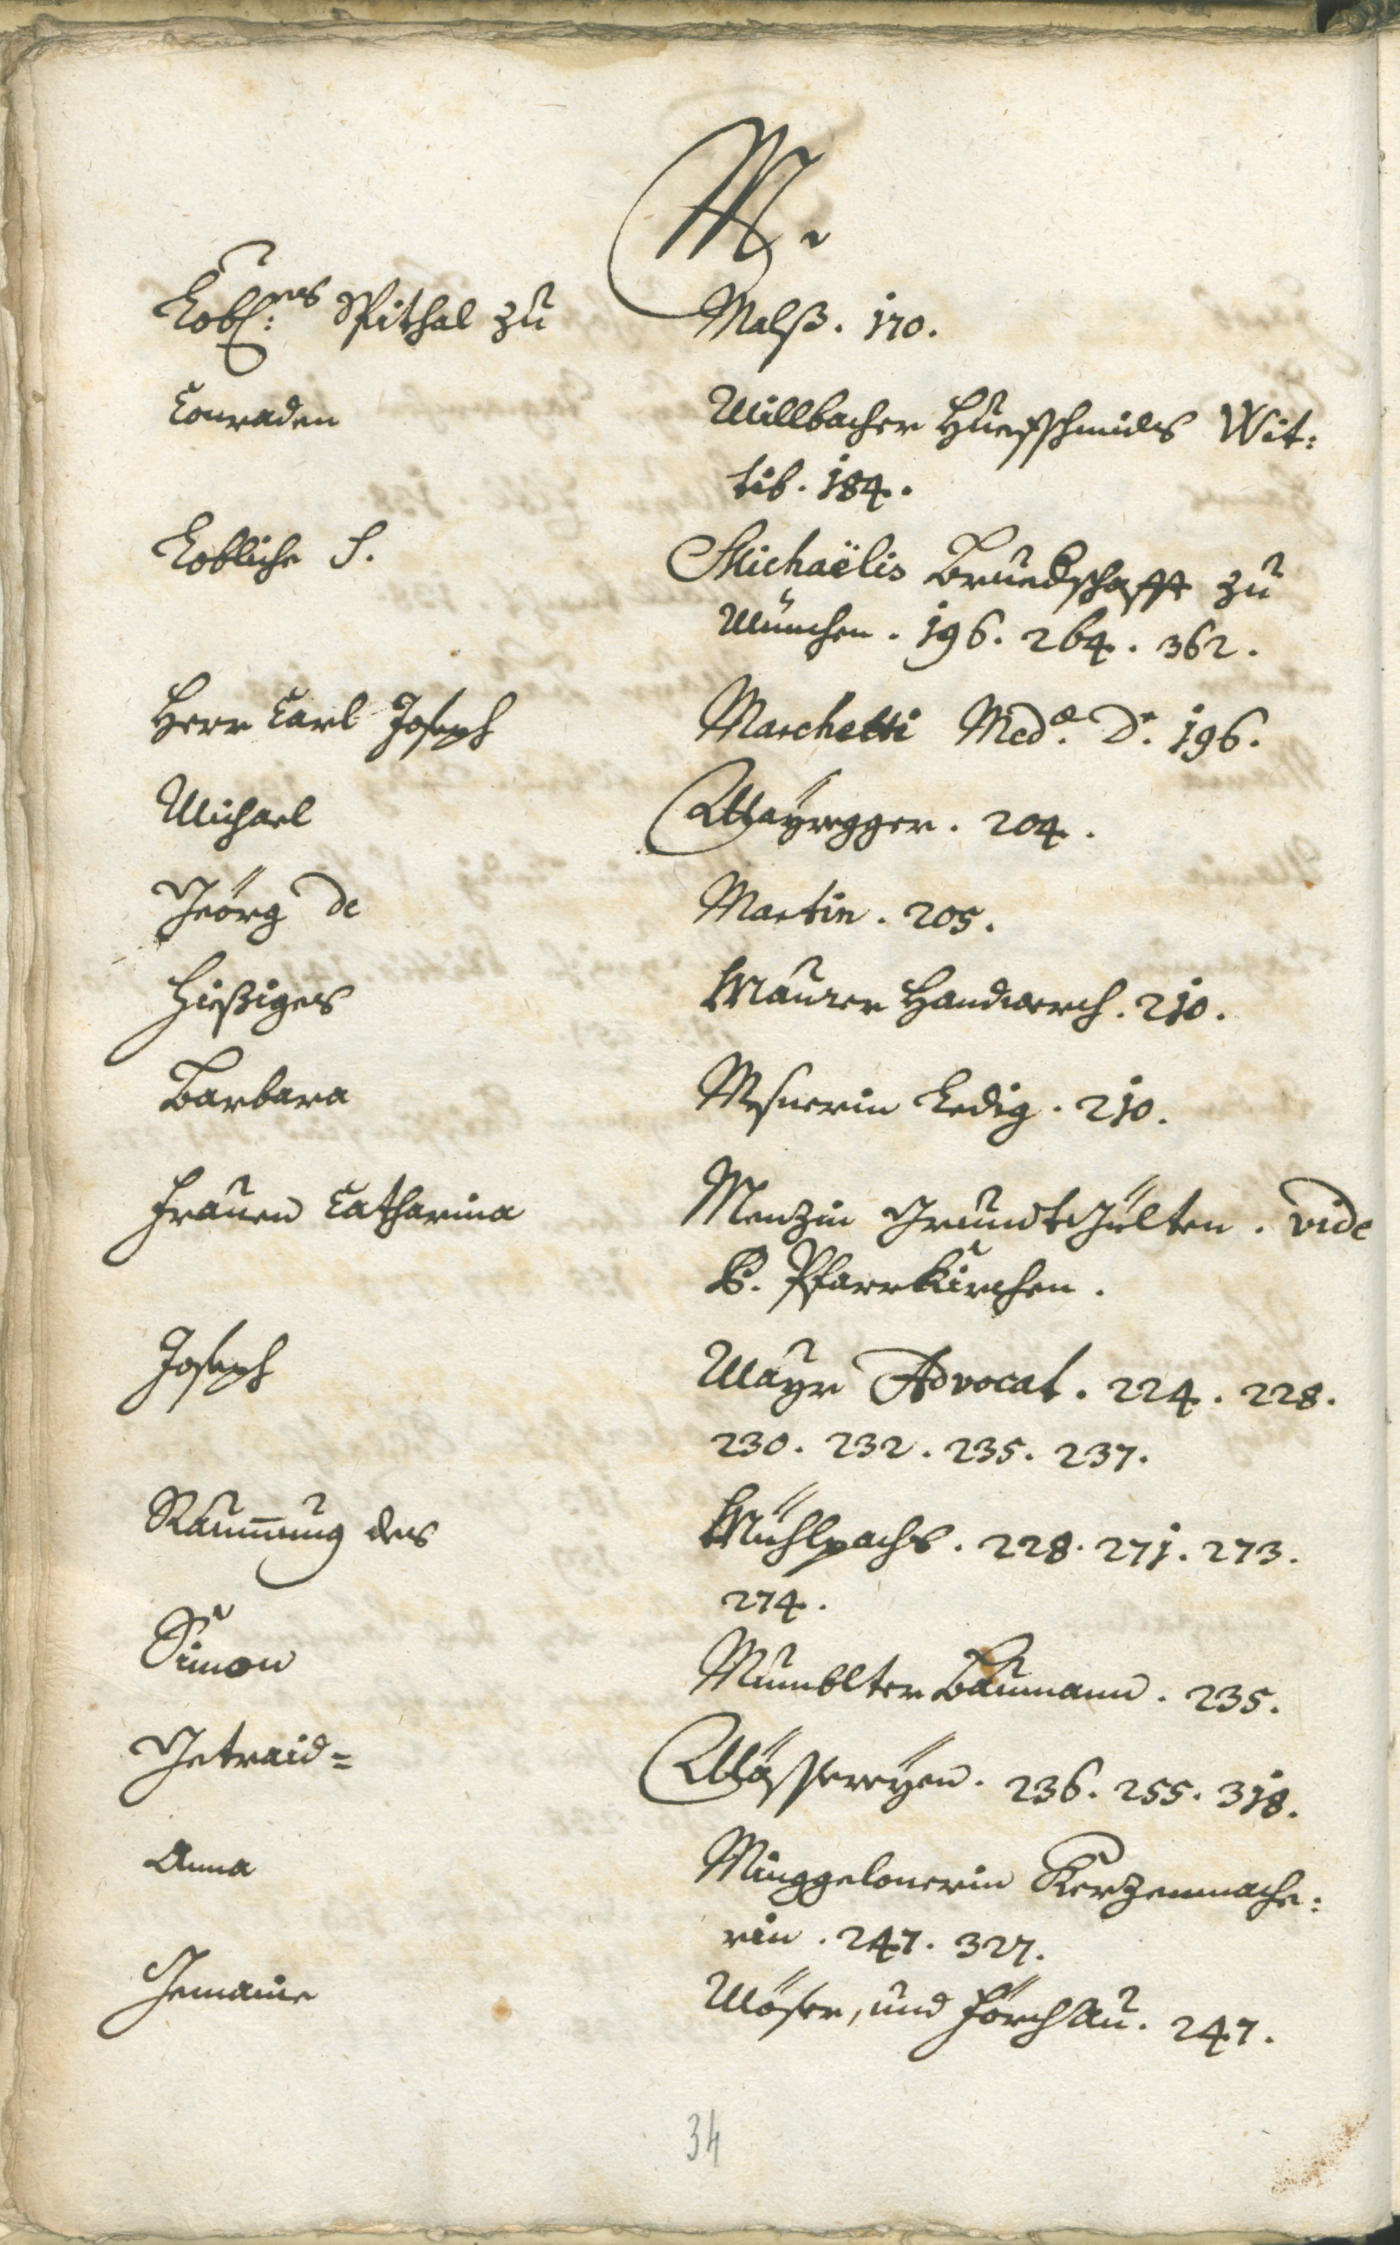 M.
Lobl:es Spithal zu Malß. 170.
Conraden Millbacher Huefschmids Wit:
tib. 184.
Lobliche S. Michaëlis Bruedschafft zu
München. 196. 264. 362.
Herr Carl Joseph Marchetti Med: D: 196.
Michael Mayregger. 204.
Jeörg de Martin. 205.
Hießiges Maurer Handwerch. 210.
Barbara Mesnerin Ledig. 210.
Frauen Catharina Menzin Grundt Gülten. vide
B. Pfarrkirchen.
Joseph Mayr Advocat. 224. 228.
230. 232. 235. 237.
Raumung des Mühlpachs. 228. 271. 273.
274.
Simon Mumblter Baumann. 235.
Getraid= Mässereyen. 236. 255. 318.
Anna Minggelonerin Kerzenmache:
rin. 247. 327.
Gemaine Möser, und Förchau. 247.
34